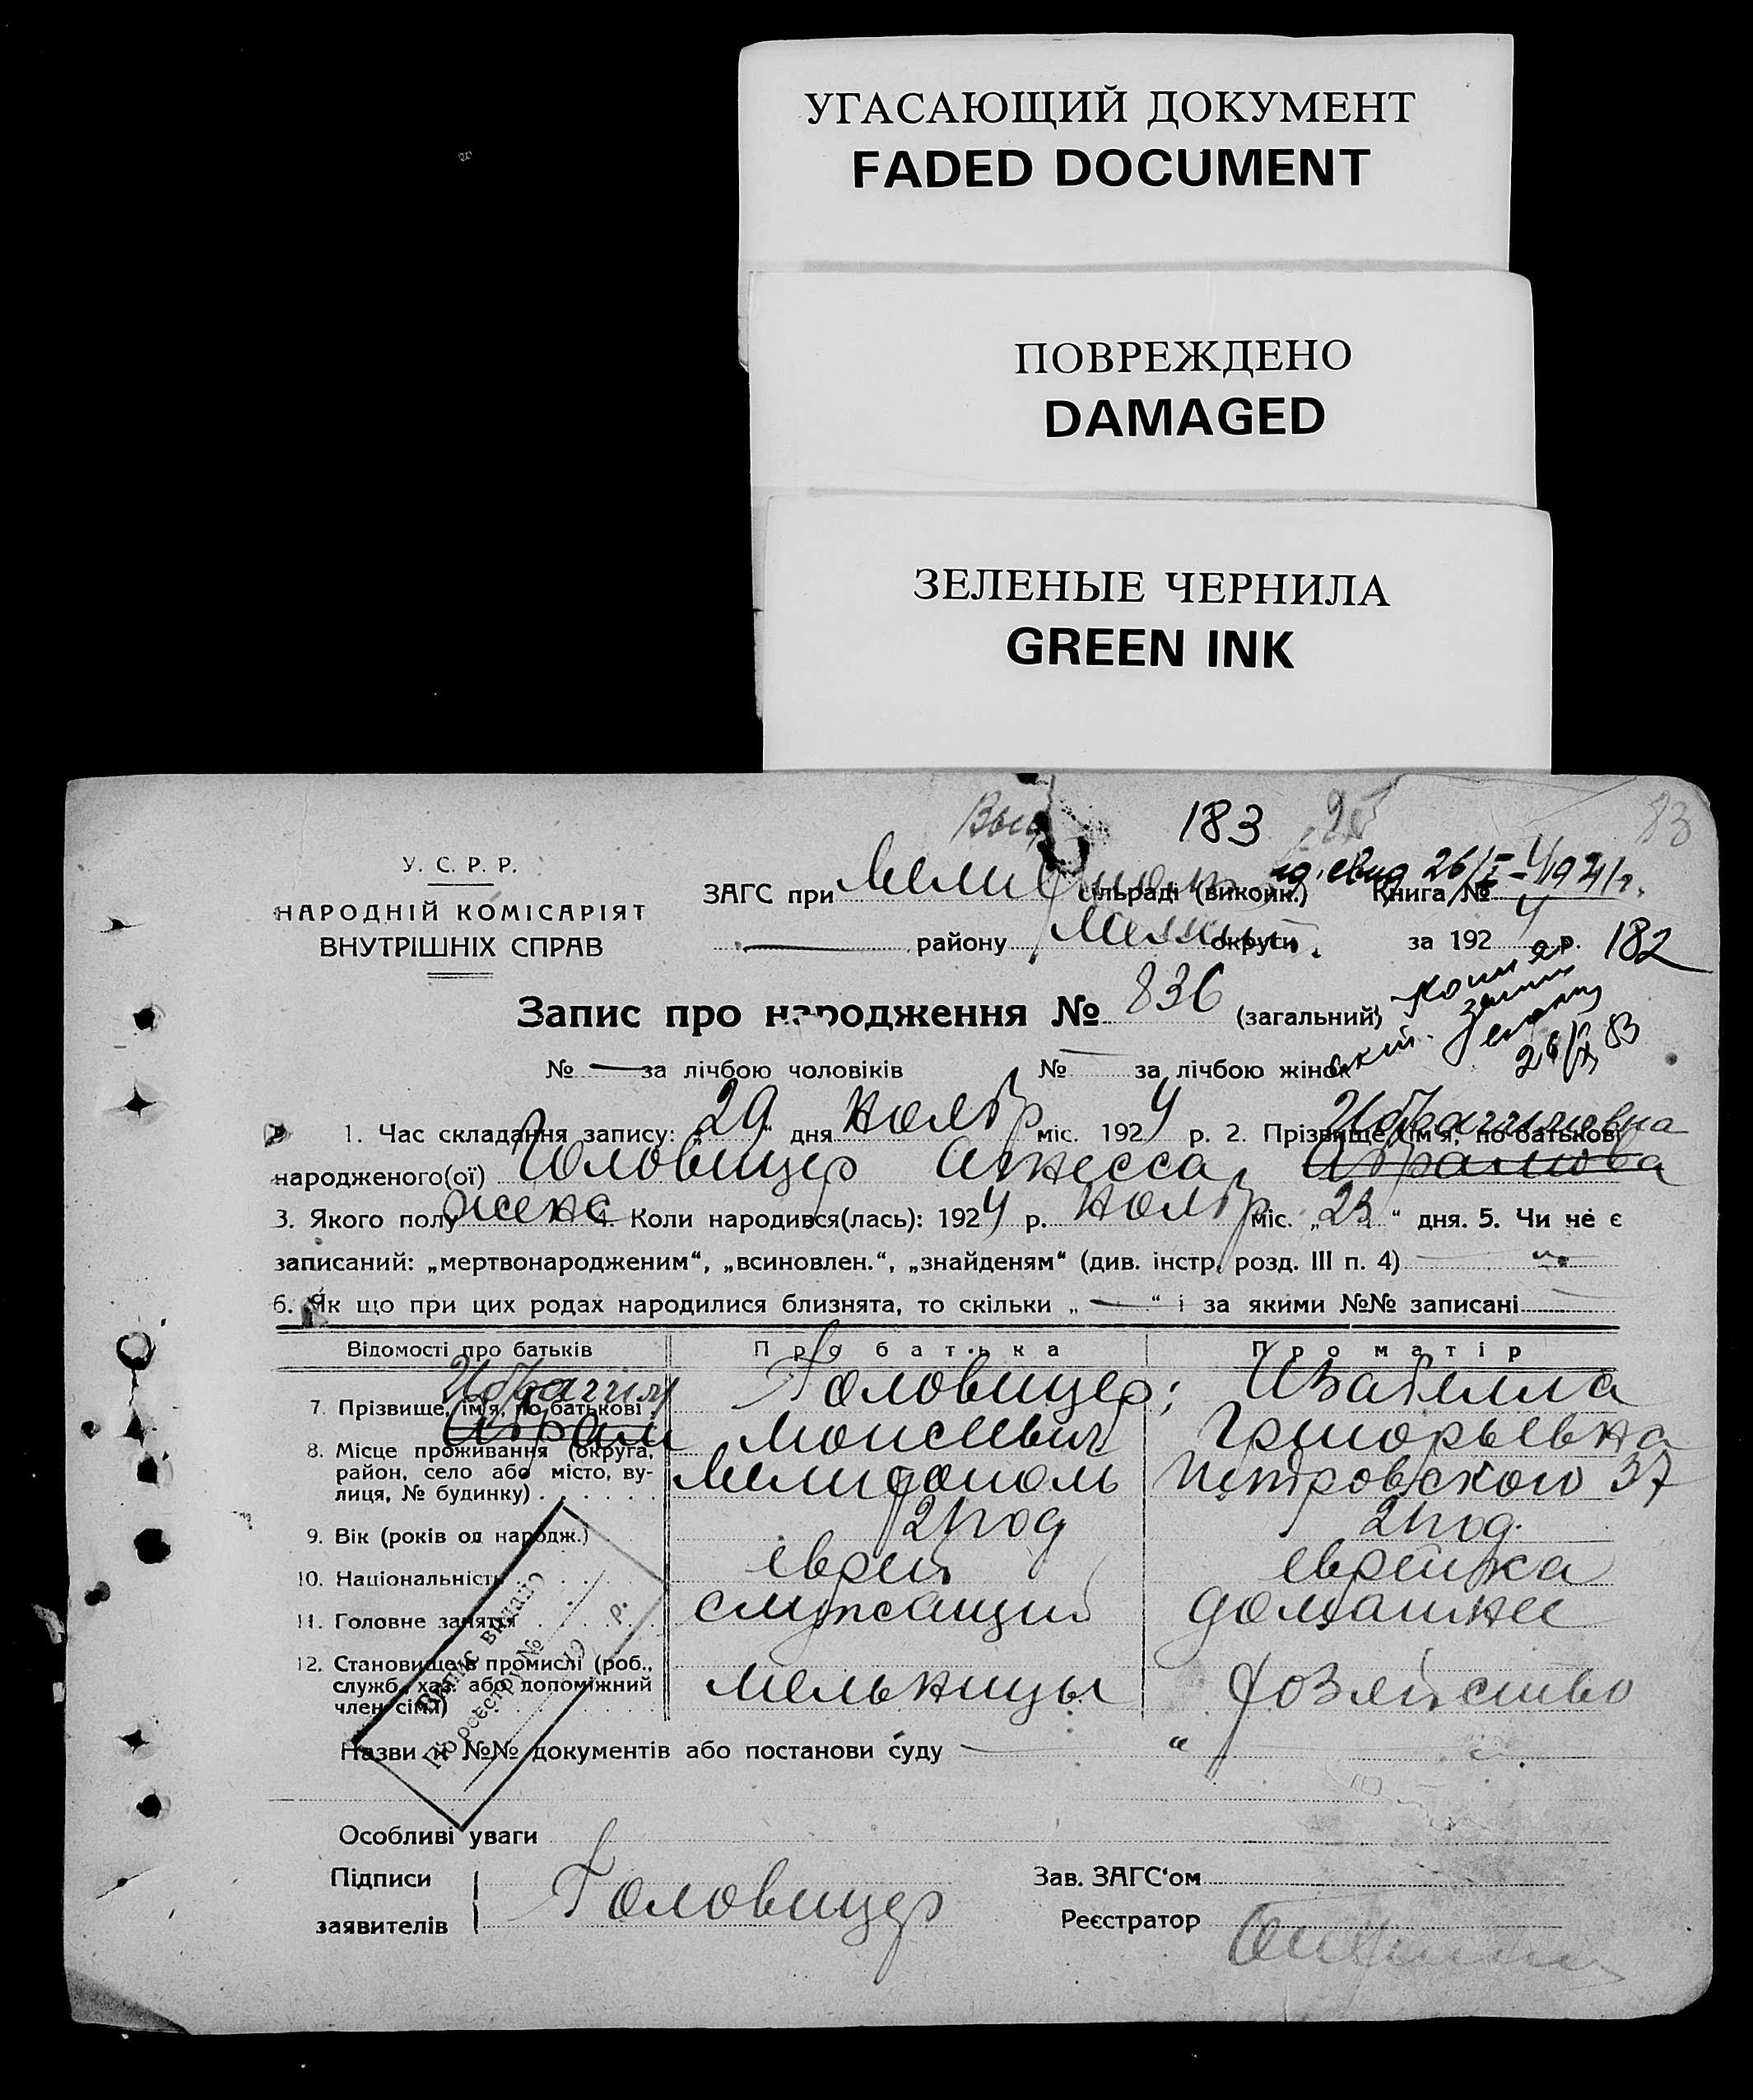 УГАСАЮЩИЙ ДОКУМЕНТ
FADED DOCUMENT
ПОВРЕЖДЕНО
DAMAGED
ЗЕЛЕНЫЕ ЧЕРНИЛА
GREEN INK
183
83
У. С. Р. Р.
НАРОДНІЙ КОМІСАРІЯТ
ВНУТРІШНІХ СПРАВ
ЗАГС при Мелитополь сільраді (виконк.) Книга №
району Мелит. округи за 192 4 р. 182
Запис про народження № 836 (загальний)
№ — за лічбою чоловіків № за лічбою жінок
26/X 83
Ибрагимовна
1. Час складання запису: „29“ дня Ноябр міс. 1924 р. 2. Прізвище, ім'я, по-батькові
народженого(ої) Головицер Агнесса Абрамова
3. Якого полу женс 4. Коли народився(лась): 1924 р. Ноябр міс. „23“ дня. 5. Чи не є
записаний: „мертвонародженим“, „всиновлен.“, „знайденям“ (див. інстр. розд. III п. 4)
6. Як що при цих родах народилися близнята, то скільки „—“ і за якими №№ записані
Відомості про батьків Про батька Про матір
Ибрагим
7. Прізвище, ім'я, по-батькові Головицер; Изабелла
Абрам Моисеевич Григорьевна
8. Місце проживання (округа, район, село або місто, вулиця, № будинку) Мелитополь Петровского 37
9. Вік (років од народж.) 21 год 21 год.
10. Національність еврей еврейка
11. Головне заняття служащий домашнее
12. Становище в промислі (роб., служб., хаз. або допоміжний член сім'ї) мельницы хозяйство
Назви й №№ документів або постанови суду — „
Випис видано
По реєстру №
19 р.
Особливі уваги
Підписи заявителів Головицер
Зав. ЗАГС'ом
Реєстратор